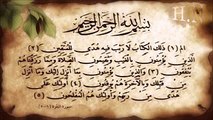 بسم الله الرحمن الرحيم
H
الم (١) ذَلِكَ الْكِتَابُ لَا رَيْبَ فِيهِ هُدًى لِلْمُتَّقِينَ (٢)
الَّذِينَ يُؤْمِنُونَ بِالْغَيْبِ وَيُقِيمُونَ الصَّلَاةَ وَمِمَّا رَزَقْنَاهُمْ
يُنْفِقُونَ (٣) وَالَّذِينَ يُؤْمِنُونَ بِمَا أُنْزِلَ إِلَيْكَ وَمَا أُنْزِلَ
مِنْ قَبْلِكَ وَبِالْآخِرَةِ هُمْ يُوقِنُونَ (٤) أُولَئِكَ عَلَى
هُدًى مِنْ رَبِّهِمْ وَأُولَئِكَ هُمُ الْمُفْلِحُونَ (٥)
سورة البقرة